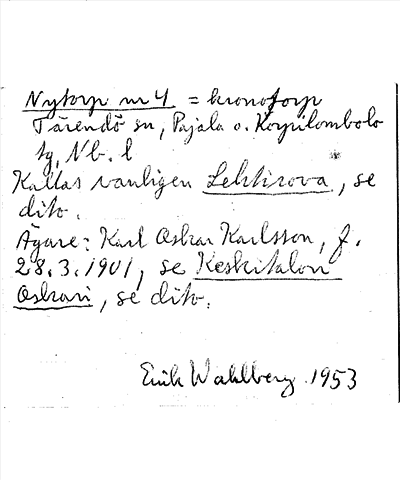 Nytorp nr 4 = kronotorp
Tärendö sn, Pajala o. Korpilombolo
tg, Nb. l
Kallas vanligen Lehtirova, se
dito.
Ägare: Karl Oskar Karlsson, f.
28.3.1901, se Keskitalon
Oskari, se dito.
Erik Wahlberg 1953